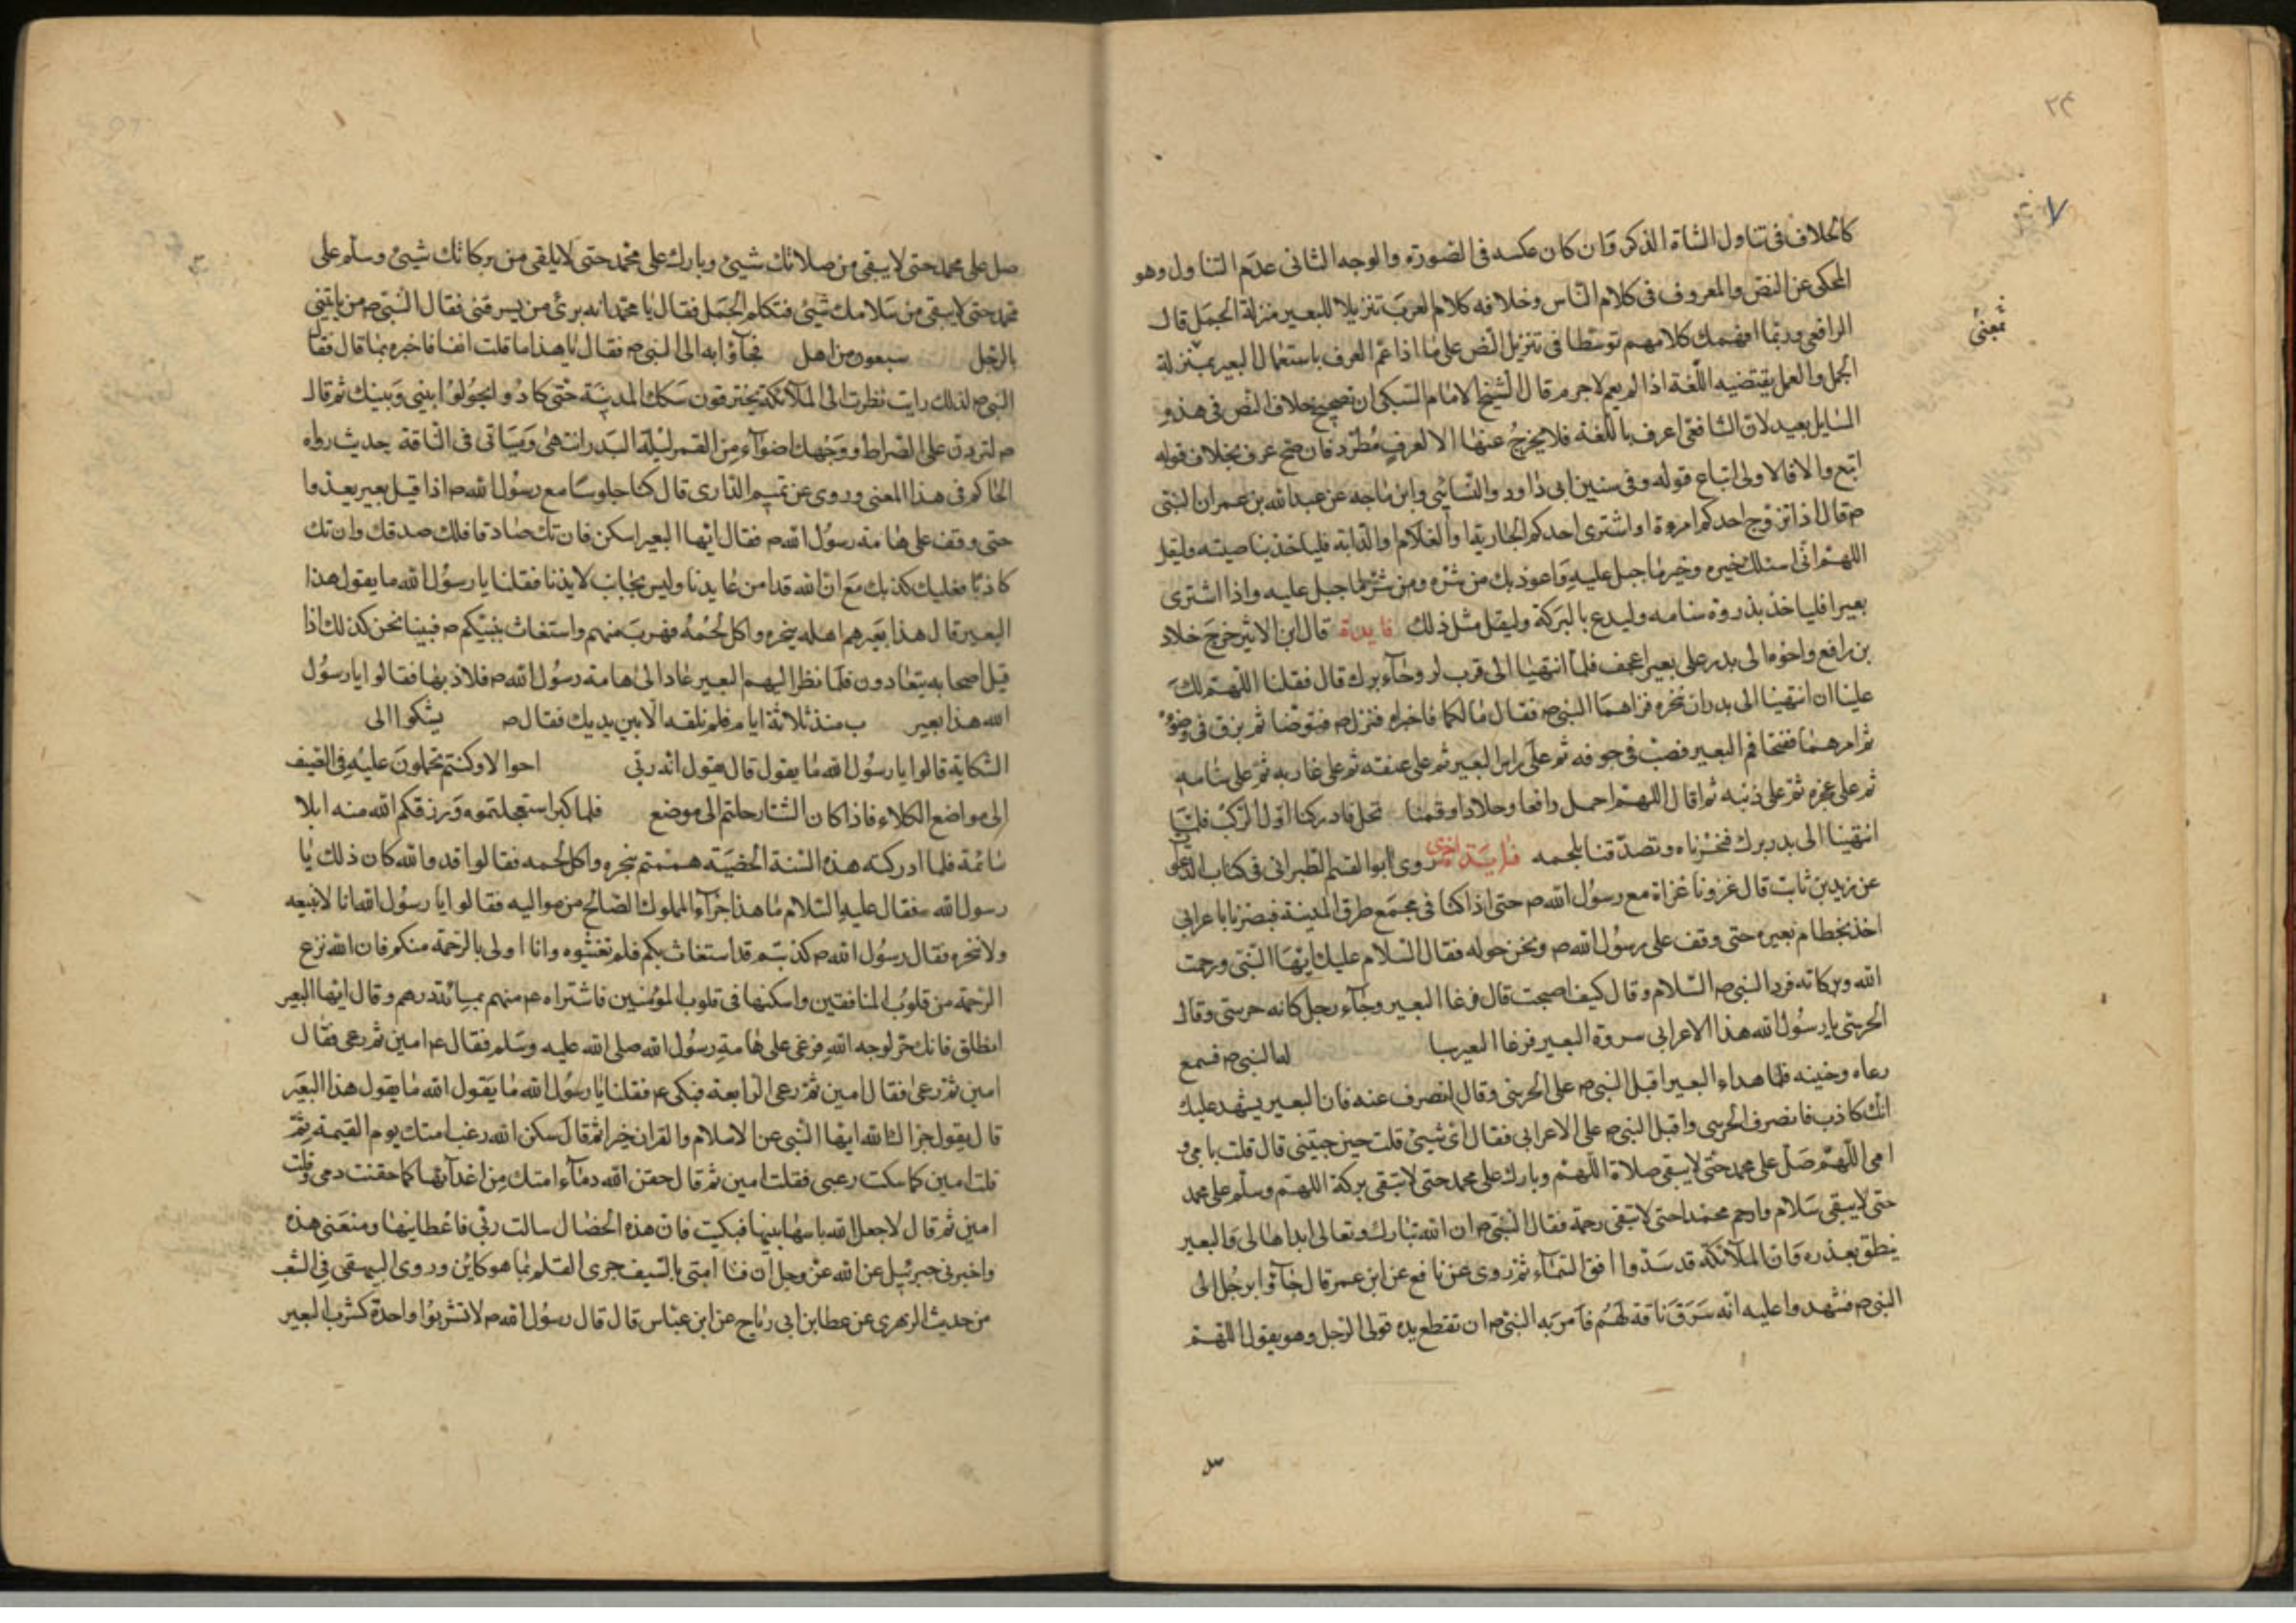 ٢٤
كالخلاف في تناول الشاة الذكر وان كان عكسه في الصورة والوجه الثانى عدم التناول وهو
المحكى عن النص والمعروف في كلام الناس وخلافه كلام العرب تنزيلا للبعير منزلة الجمل قال
الرافعى وربما افهمك كلامهم توسطا فى تنزيل النص على ما اذا عم العرف باستعمال البعير بمنزلة
الجمل والعمل يقتضيه اللغة اذا لم يعم لاجرم قال الشيخ الامام السبكى ان تصحيح خلاف النص فى هذه
المسايل بعيد لان الشافعى اعرف باللغة فلا يخرج عنها الا لعرف مطرد فان صح عرف بخلاف قوله
اتبع والا فالاولى اتباع قوله وفى سنين ابى داود والنسائى وابن ماجه عن عبدالله بن عمران النبى
ص قال اذا تزوج احدكم امروة او اشترى احدكم الجارية او الغلام او الدابة فلياخذ بناصيته وليقل
اللهم انى اسئلك خيره وخير ما جبل عليه واعوذ بك من شره ومن شر ما جبل عليه واذا اشترى
بعيرا فلياخذ بذروة سنامه وليدع بالبركة وليقل مثل ذلك فايدة قال ابن الاثير خرج خلاد
بن رافع واخوه الى بدر على بعير اعجف فلما انتهينا الى قرب لروحاء برك قال فقلنا اللهم لك
علينا ان انتهينا الى بدر ان نخره فراهما النبى ص فقال ما لكما فاخبراه فنزل ص فتوضا ثم بزق فى وضوئه
ثم امرهما ففتحا فم البعير فصب فى جوفه ثم على راس البعير ثم على عنقه ثم على غاربه ثم على سنامه
ثم على عجزه ثم على ذنبه ثم قال اللهم احمل رافعا وخلادا وقمنا نحل فادركنا اول الركب فلما
انتهينا الى بدر برك فنحرناه وتصدقنا بلحمه فايدة اخرى روى ابو القسم الطبرانى فى كتاب الدعو
عن زيد بن ثابت قال غزونا غزاة مع رسول الله ص حتى اذا كنا فى مجمع طرق المدينة فبصرنا باعرابى
اخذ بخطام بعيره حتى وقف على رسول الله ص ونحن حوله فقال السلام عليك ايها النبى ورحمت
الله وبركاته فرد النبى ص السلام وقال كيف اصبحت قال فرغا البعير وجاء رجل كانه حرستى وقال
الحرستى يا رسول الله هذا الاعرابى سروة البعير فرغا البعير سا لها النبى ص فسمع
رعاه وحنينه فلما هداء البعير اقبل النبى ص على الحرسى وقال انصرف عنه فان البعير يشهد عليك
انك كاذب فانصرف الحرسى واقبل النبى ص على الاعرابى فقال اى شيئ قلت حين جيتنى قال قلت بابى و
امى اللهم صل على محمد حتى لا يبقى صلاة اللهم وبارك على محمد حتى لا تبقى بركة اللهم وسلم على محمد
حتى لا يبقى سلام وارحم محمدا حتى لا تبقى رحمة فقال النبى ص ان الله تبارك وتعالى ابداها لى والبعير
ينطق بعذره وان الملائكة قد سدوا افق السماء ثم روى عن نافع عن ابن عمر قال جاؤا برجل الى
النبى ص فشهدوا عليه انه سرق ناقة لهم فامر به النبى ص ان تقطع يده فولى الرجل وهو يقول اللهم
بمعنى
صل على محمد حتى لا يبقى من صلاتك شيئ وبارك على محمد حتى لا يلقى من بركاتك شيئ وسلم على
محمد حتى لا يبقى من سلامك شيئ فتكلم الجمل فقال يا محمد انه برئ من يسرقنى فقال النبى ص من ياتينى
بالرجل سبعون من اهل فجاؤا به الى النبى ص فقال يا هذا ما قلت انفا فاخبره بما قال فقال
النبى ص لذلك رايت نظرت الى الملائكة يخترقون سكك المدينة حتى كادوا يحولوا بينى وبينك ثم قال
ص لتردن على الصراط ووجهك اضواء من القمر ليلة البدر انتهى وياتى فى الناقة حديث رواه
الحاكم فى هذا المعنى وروى عن تميم الدارى قال كنا جلوسا مع رسول الله ص اذا قيل بعير يعذوا
حتى وقف على هامة رسول الله ص فقال ايها البعير اسكن فان تك صادقا فلك صدقك وان تك
كاذبا فعليك كذبك مع ان الله قد امن عايدنا وليس بخايب لايذنا فقلنا يا رسول الله ما يقول هذا
البعير قال هذا بعير هم اهله بنحره واكل لحمه فهرب منهم واستغاث بنبيكم ص فبينا نحن كذلك اذا
قبل اصحابه يتعادون فلما نظر اليهم البعير عاد الى هامة رسول الله ص فلاذ بها فقالوا يا رسول
الله هذا بعير ب منذ ثلاثة ايام فلم نلقه الا بين يديك فقال ص يشكوا الى
الشكاية قالوا يا رسول الله ما يقول قال يقول انه ربى احوالا وكنتم تحملون عليه فى الصيف
الى مواضع الكلاء فاذا كان الشتا رحلتم الى موضع فلما كبر استعجلتموه ورزقكم الله منه ابلا
سائمة فلما ادركته هذه السنة الخضية هممتم بنحره واكل لحمه فقالوا قد والله كان ذلك يا
رسول الله فقال عليه السلام ما هذا جزاء المملوك الصالح من مواليه فقالوا يا رسول الله انا لا نبيعه
ولا نخره فقال رسول الله ص كذبتم قد استغاث بكم فلم تغيثوه وانا اولى بالرحمة منكم فان الله نزع
الرحمة من قلوب المنافقين واسكنها فى قلوب المؤمنين فاشتراه ع منهم بمائة درهم وقال ايها البعير
انطلق فانك حر لوجه الله فرغى على هامة رسول الله صلى الله عليه وسلم فقال ع امين ثم رعى فقال
امين ثم رعى فقال امين ثم رعى الرابعة فبكى ع فقلنا يا رسول الله ما يقول الله ما يقول هذا البعير
قال يقول جزاك الله ايها النبى عن الاسلام والقران خيرا ثم قال سكن الله رعب امتك يوم القيمة ثم
قلت امين كما سكت رعبى فقلت امين ثم قال حقن الله دماء امتك من اعدائها كما حقنت دمى وقلت
امين ثم قال لا جعل الله باسها بينها فبكيت فان هذه الخصال سالت ربى فاعطانيها ومنعنى هذه
واخبرنى جبرئيل عن الله عز وجل ان فنا امتى بالسيف جرى القلم بما هو كائن وروى البيهقى فى الشعب
من حديث الزهرى عن عطا بن ابى رباح عن ابن عباس قال قال رسول الله ص لا تشربوا واحدة كشرب البعير